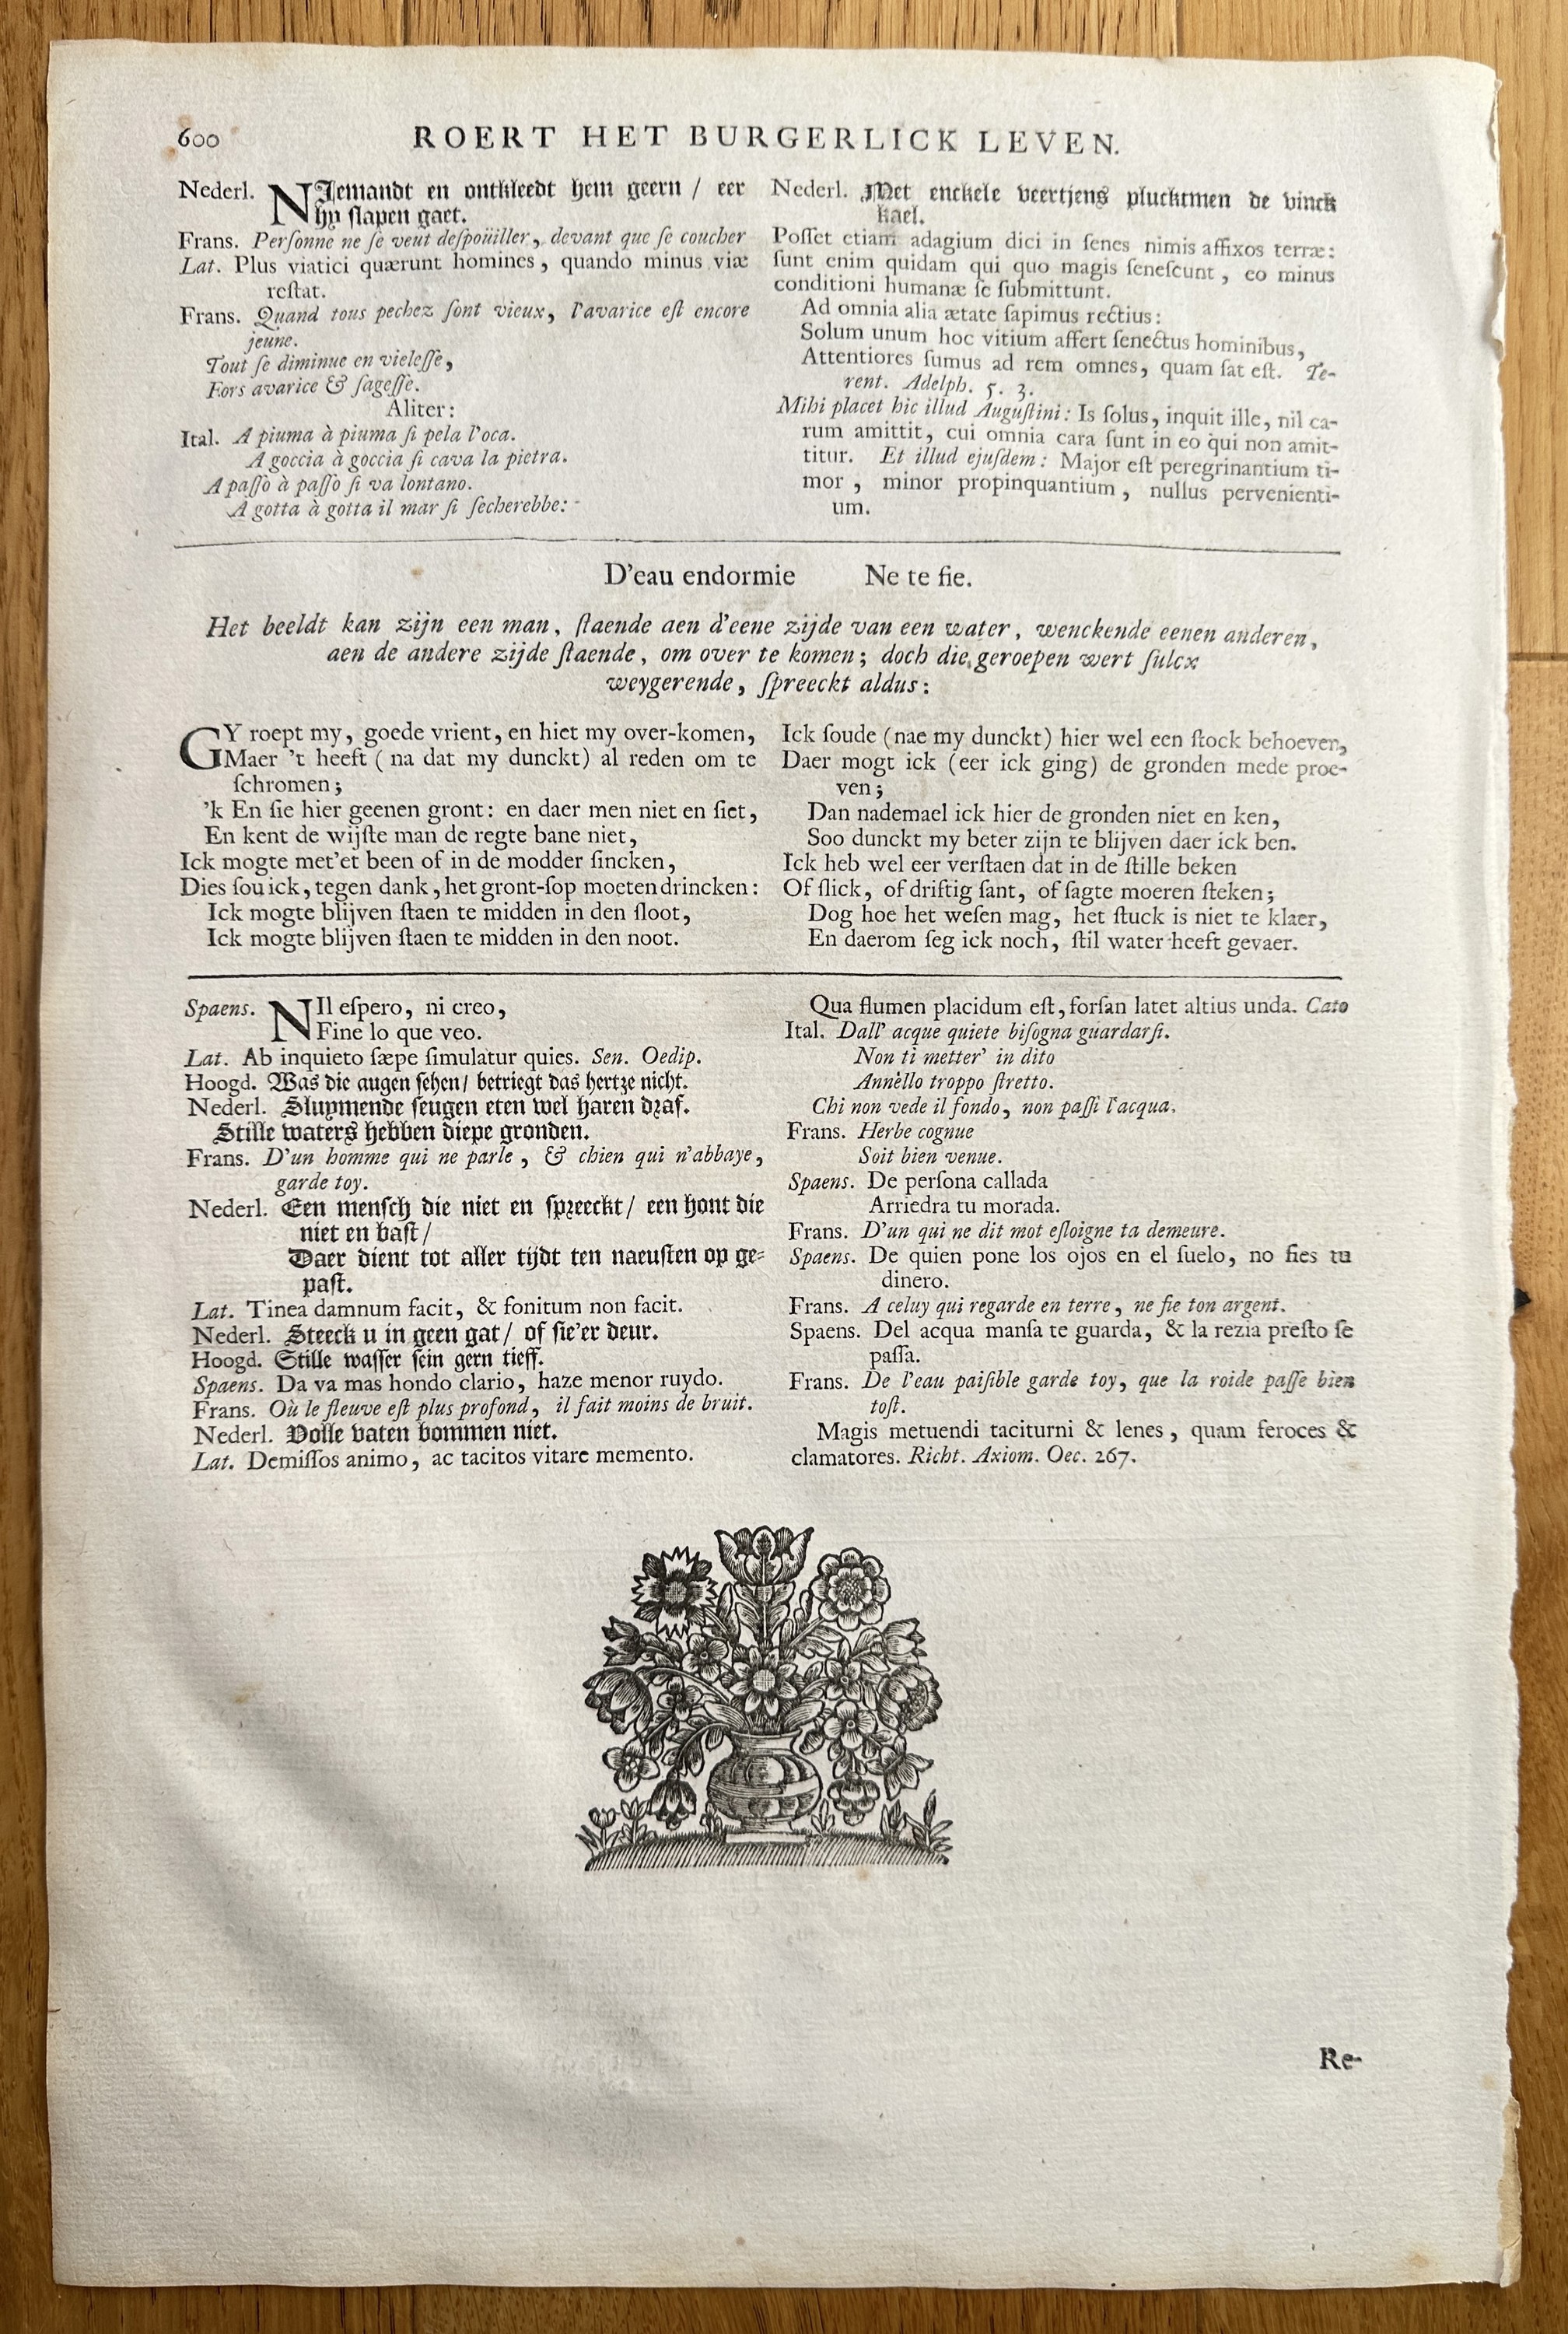 600
ROERT HET BURGERLICK LEVEN.
Nederl. NJemandt en ontkleedt hem geern / eer
hy slapen gaet.
Frans. Perſonne ne ſe veut deſpoüiller, devant que ſe coucher
Lat. Plus viatici quærunt homines, quando minus viæ
reſtat.
Frans. Quand tous pechez ſont vieux, l'avarice eſt encore
jeune.
Tout ſe diminue en vieleſſe,
Fors avarice & ſageſſe.
Aliter:
Ital. A piuma à piuma ſi pela l'oca.
A goccia à goccia ſi cava la pietra.
A paſſo à paſſo ſi va lontano.
A gotta à gotta il mar ſi ſecherebbe:
Nederl. Met enckele veertjens plucktmen de vinck
kael.
Poſſet etiam adagium dici in ſenes nimis affixos terræ:
ſunt enim quidam qui quo magis ſeneſcunt, eo minus
conditioni humanæ ſe ſubmittunt.
Ad omnia alia ætate ſapimus rectius:
Solum unum hoc vitium affert ſenectus hominibus,
Attentiores ſumus ad rem omnes, quam ſat eſt. Te-
rent. Adelph. 5. 3.
Mihi placet hic illud Auguſtini: Is ſolus, inquit ille, nil ca-
rum amittit, cui omnia cara ſunt in eo qui non amit-
titur. Et illud ejuſdem: Major eſt peregrinantium ti-
mor, minor propinquantium, nullus pervenienti-
um.
D'eau endormie Ne te fie.
Het beeldt kan zijn een man, ſtaende aen d'eene zijde van een water, wenckende eenen anderen,
aen de andere zijde ſtaende, om over te komen; doch die geroepen wert ſulcx
weygerende, ſpreeckt aldus:
GY roept my, goede vrient, en hiet my over-komen,
Maer 't heeft (na dat my dunckt) al reden om te
ſchromen;
'k En ſie hier geenen gront: en daer men niet en ſiet,
En kent de wijſte man de regte bane niet,
Ick mogte met'et been of in de modder ſincken,
Dies ſou ick, tegen dank, het gront-ſop moeten drincken:
Ick mogte blijven ſtaen te midden in den ſloot,
Ick mogte blijven ſtaen te midden in den noot.
Ick ſoude (nae my dunckt) hier wel een ſtock behoeven,
Daer mogt ick (eer ick ging) de gronden mede proe-
ven;
Dan nademael ick hier de gronden niet en ken,
Soo dunckt my beter zijn te blijven daer ick ben.
Ick heb wel eer verſtaen dat in de ſtille beken
Of ſlick, of driftig ſant, of ſagte moeren ſteken;
Dog hoe het weſen mag, het ſtuck is niet te klaer,
En daerom ſeg ick noch, ſtil water heeft gevaer.
Spaens. NIl eſpero, ni creo,
Fine lo que veo.
Lat. Ab inquieto ſæpe ſimulatur quies. Sen. Oedip.
Hoogd. Was die augen ſehen/ betriegt das hertze nicht.
Nederl. Sluymende ſeugen eten wel haren draf.
Stille waters hebben diepe gronden.
Frans. D'un homme qui ne parle, & chien qui n'abbaye,
garde toy.
Nederl. Een menſch die niet en ſpreeckt/ een hont die
niet en baſt/
Daer dient tot aller tijdt ten naeuſten op ge-
paſt.
Lat. Tinea damnum facit, & ſonitum non facit.
Nederl. Steeck u in geen gat/ of ſie'er deur.
Hoogd. Stille waſſer ſein gern tieff.
Spaens. Da va mas hondo clario, haze menor ruydo.
Frans. Où le fleuve eſt plus profond, il fait moins de bruit.
Nederl. Volle vaten bommen niet.
Lat. Demiſſos animo, ac tacitos vitare memento.
Qua flumen placidum eſt, forſan latet altius unda. Cato
Ital. Dall' acque quiete biſogna guardarſi.
Non ti metter' in dito
Annèllo troppo ſtretto.
Chi non vede il fondo, non paſſi l'acqua.
Frans. Herbe cognue
Soit bien venue.
Spaens. De perſona callada
Arriedra tu morada.
Frans. D'un qui ne dit mot eſloigne ta demeure.
Spaens. De quien pone los ojos en el ſuelo, no fies tu
dinero.
Frans. A celuy qui regarde en terre, ne fie ton argent.
Spaens. Del acqua manſa te guarda, & la rezia preſto ſe
paſſa.
Frans. De l'eau paiſible garde toy, que la roide paſſe bien
toſt.
Magis metuendi taciturni & lenes, quam feroces &
clamatores. Richt. Axiom. Oec. 267.
Re-